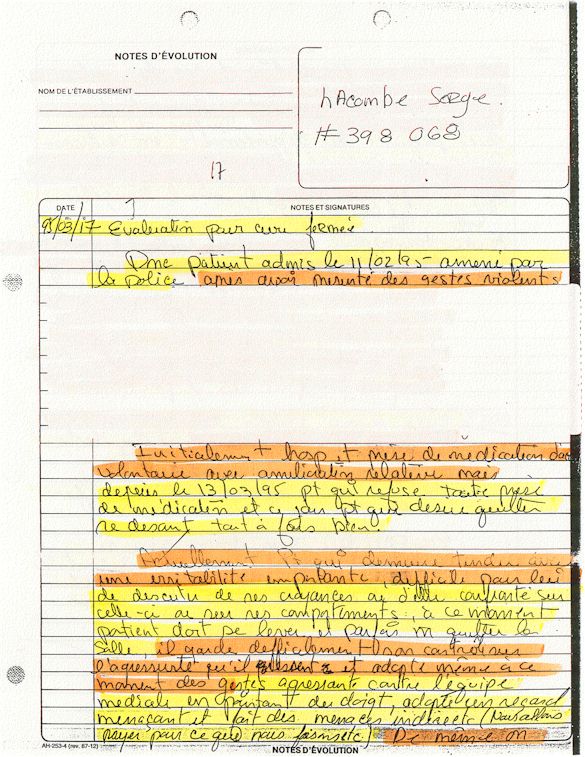 NOTES D'ÉVOLUTION
NOM DE L'ÉTABLISSEMENT
LAcombe Serge.
# 398 068
17
DATE
NOTES ET SIGNATURES
95/03/17 Evaluation pour cure fermée.
Donc patient admis le 11/02/95 amené par
la police après avoir présenté des gestes violents
Initialement hosp et prise de médication
volontaire avec amélioration relative mais
depuis le 13/03/95 pt qui refuse toute prise
de médication et ce jour pt qui désire quitter
se disant tout à fait bien.
Actuellement Pt qui demeure tendu avec
une irritabilité importante, difficile pour lui
de discuter de ses croyances ou d'être confronté sur
celle-ci ou sur ses comportements, à ce moment
patient doit se lever, et parfois quitter la
salle il garde difficilement son contrôle sur
l'agressivité qu'il et adopte même à ce
moment des gestes agressants contre l'équipe
médicale en pointant du doigt, adopte un regard
menaçant et fait des menaces indirecte (vous allez
payer pour ce que vous faites etc) De même on
AH-253-4 (rev. 87-12)
NOTES D'ÉVOLUTION